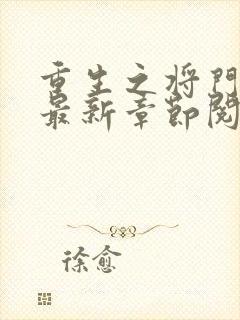 重生之将门
最新章节阅
徐愈